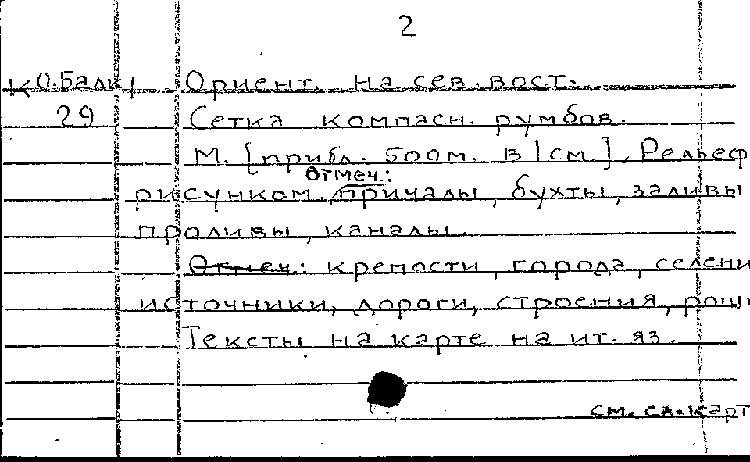 2
К О.Балк Ориент. на сев. вост.
29 Сетка компасн. румбов.
М. [прибл. 500м. в 1см.]. Рельеф
Отмеч.:
рисунком. причалы, бухты, заливы
проливы, каналы.
Отмеч.: крепости, города, селени
источники, дороги, строения, рощ
Тексты на карте на ит. яз.
см. сл. карт